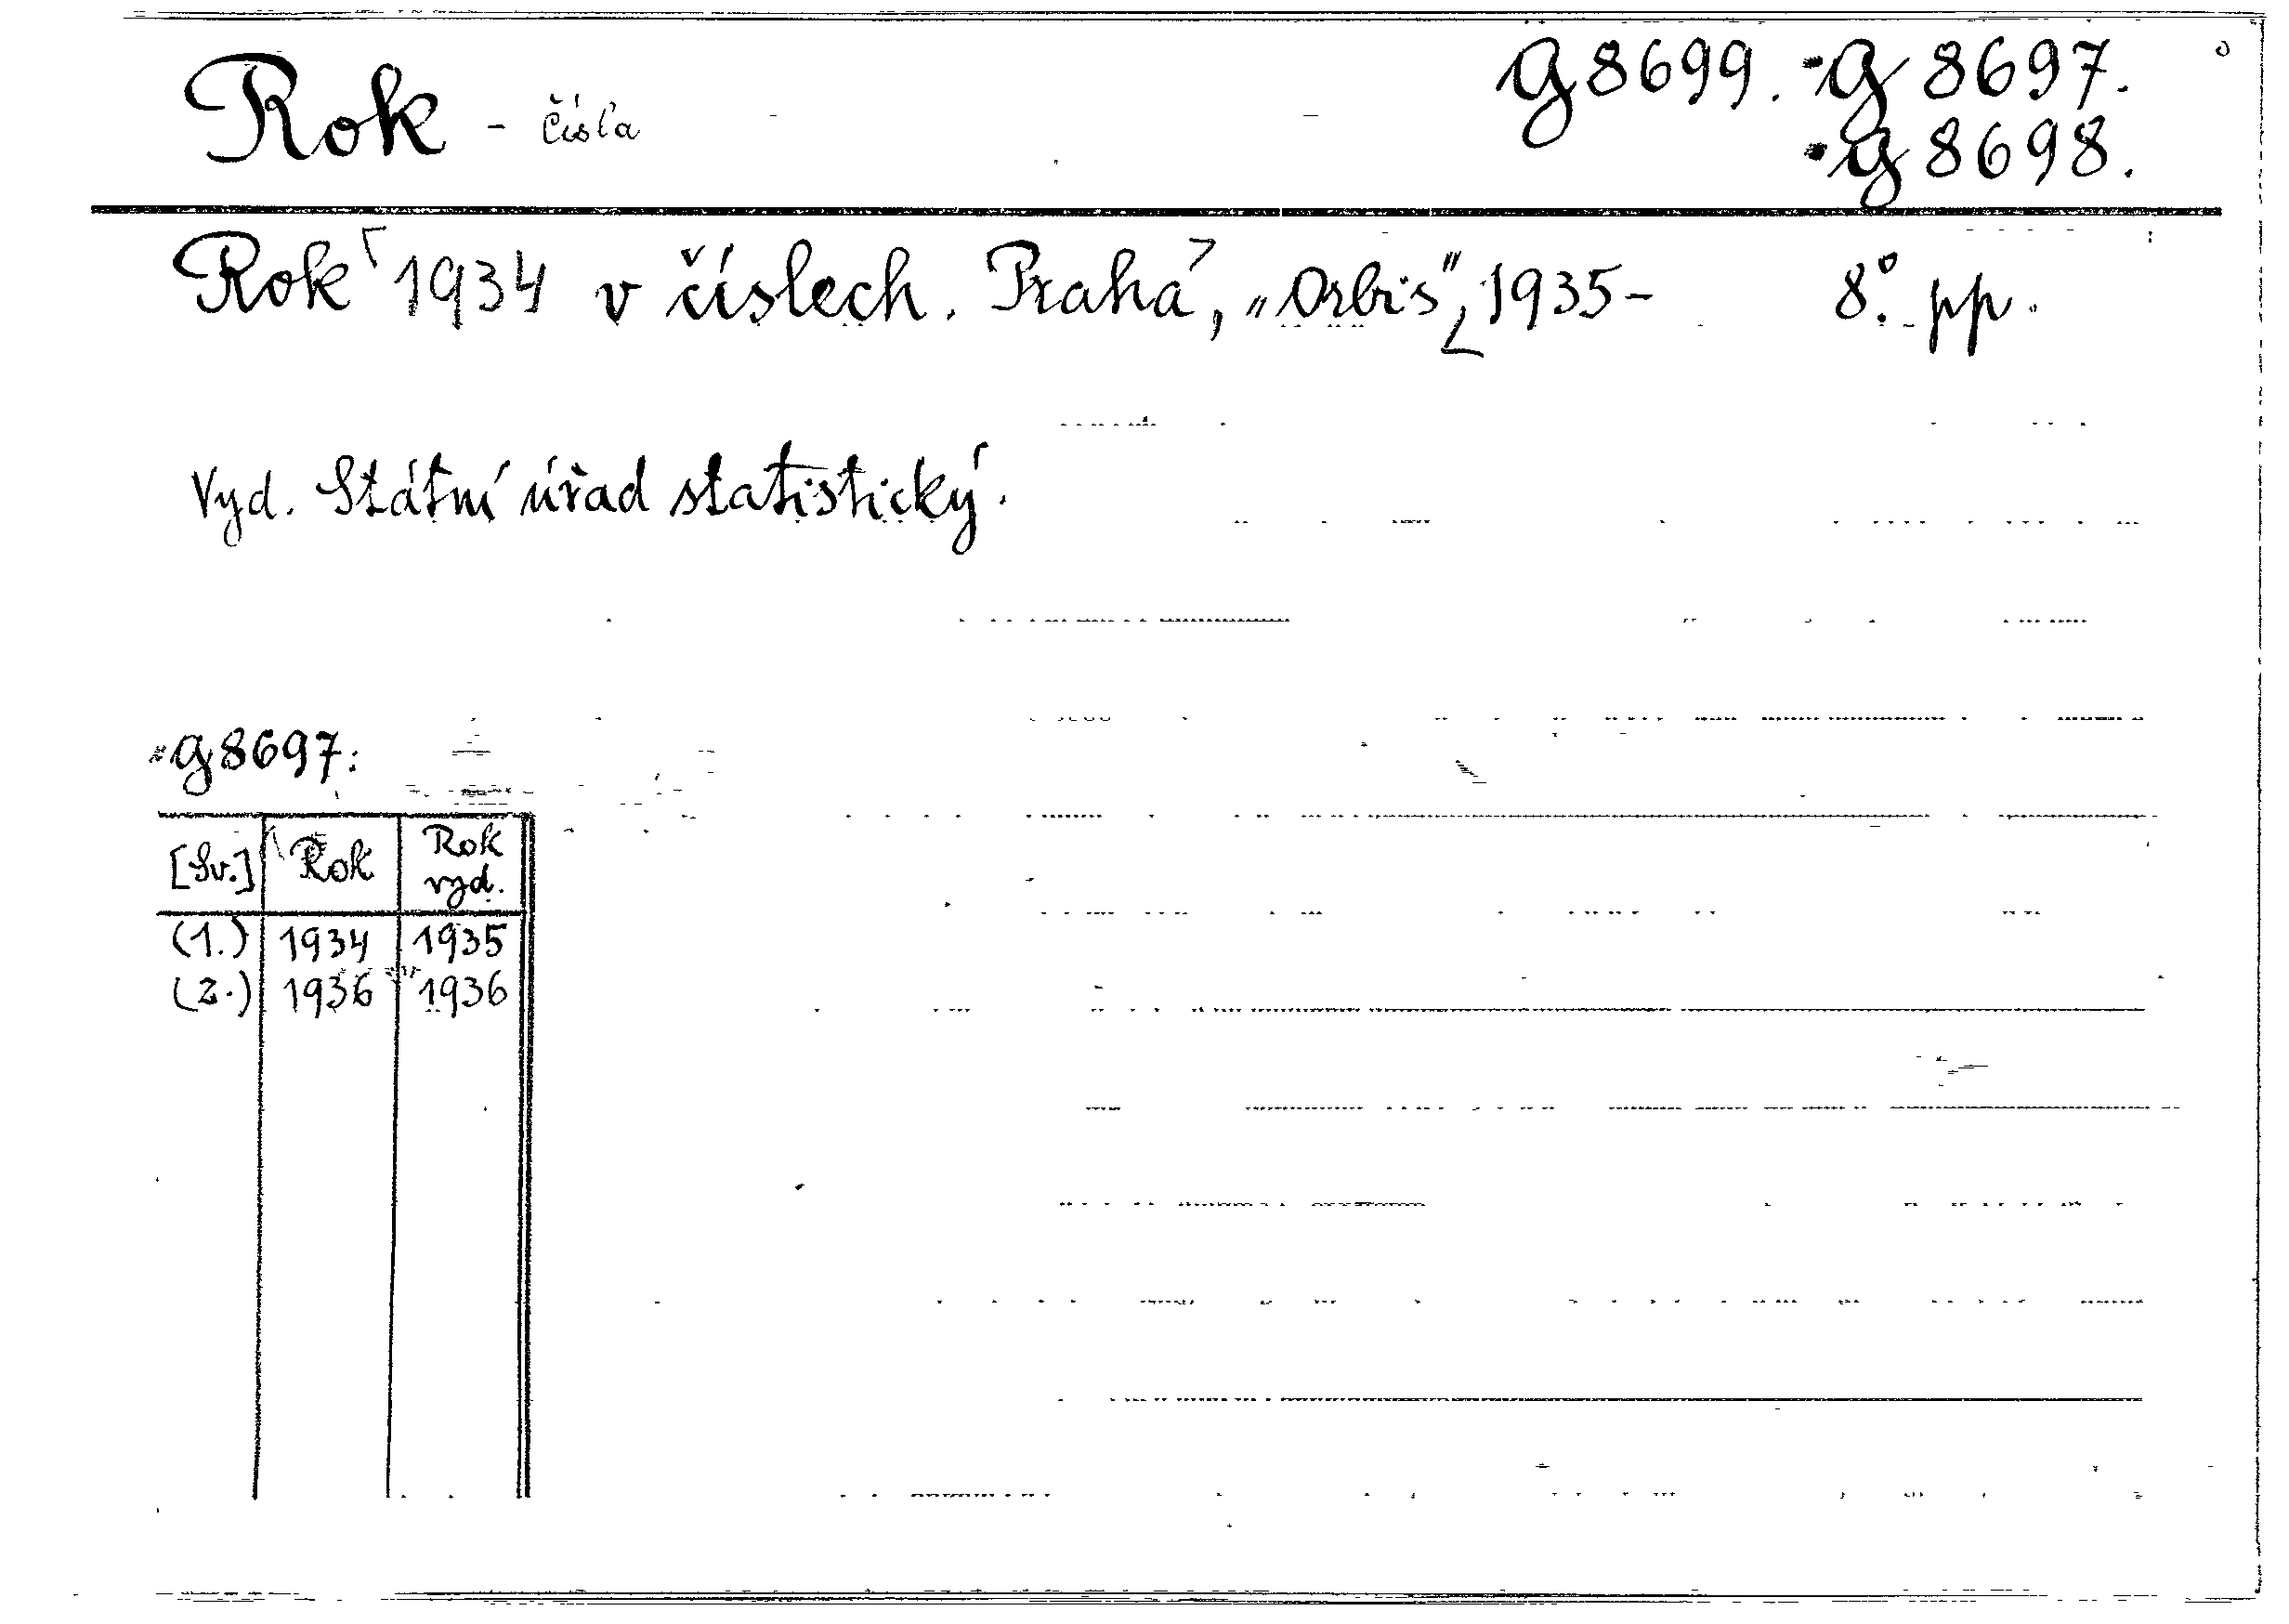 Rok - čísla g 8699. g 8697.
g 8698.
Rok 1934 v číslech. Praha, „Orbis", 1935- 8°. pp.
Vyd. Státní úřad statistický.
g 8697:
[Sv.] Rok Rok vyd.
(1.) 1934 1935
(2.) 1936 1936